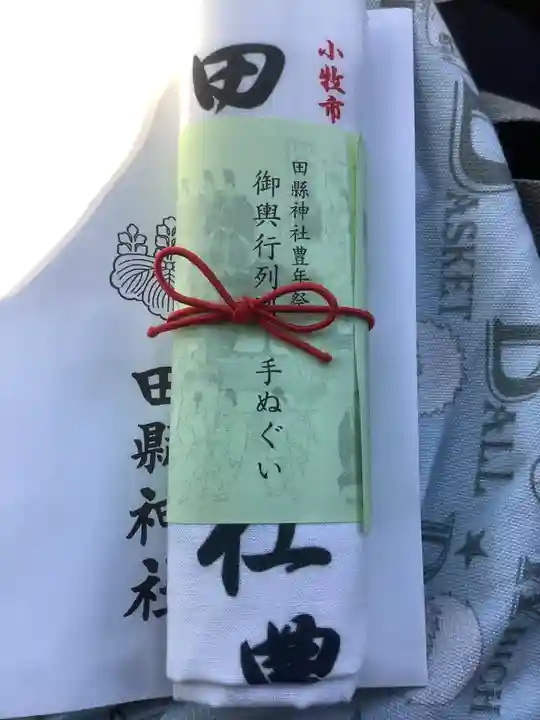 小牧市
田
社豊
田縣神社豊年祭
御輿行列
手ぬぐい
田縣神社
BASKET
BALL